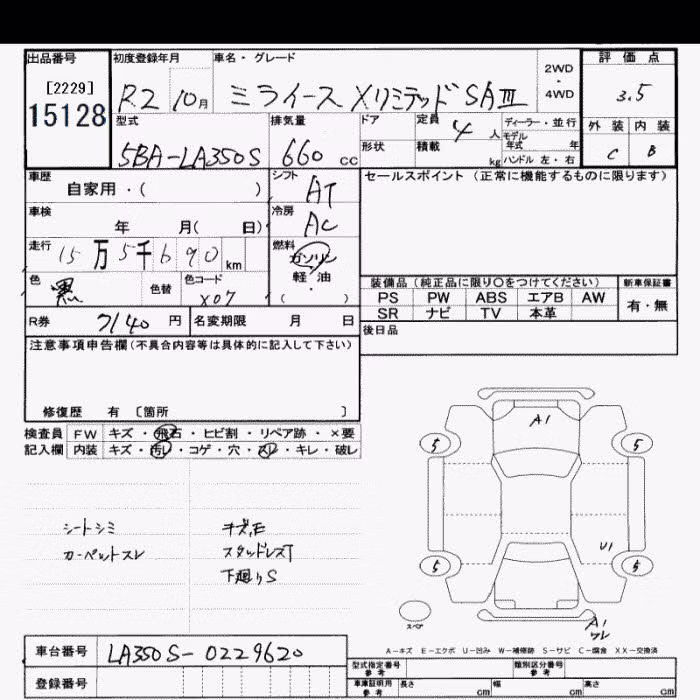 出品番号 初度登録年月 車名・グレード 評価点
[2229] 2WD
15128 R2 10月 ミライース XリミテッドSAⅢ ・ 3.5
4WD
型式 排気量 ドア 定員 4 人 ディーラー・並行 外装 内装
モデル
5BA-LA350S 660 cc 形状 積載 kg 年式 年 C B
ハンドル 左・右
車歴 シフト セールスポイント(正常に機能するものに限ります)
自家用・( ) AT
車検 冷房
年 月( 日) AC
走行 燃料
15万5千690 km ガソリン
色 色替 色コード 軽・油 装備品(純正品に限り〇をつけてください) 新車保証書
黒 X07 ( ・ ) PS PW ABS エアB AW 有・無
SR ナビ TV 本革
R券 7140 円 名変期限 月 日 後日品
注意事項申告欄(不具合内容等は具体的に記入して下さい)
修復歴 有 〔箇所 〕
検査員 FW キズ・飛石・ヒビ割・リペア跡・×要
記入欄 内装 キズ・汚レ・コゲ・穴・スレ・キレ・破レ
A1
5 5
シートシミ キズ,E
カーペットスレ スタッドレスT U1
下廻りS 5 5
スペア A1
ワレ
A-キズ E-エクボ U-凹み W-補修跡 S-サビ C-腐食 XX-交換済
車台番号 LA350S-0229620
型式指定番号 類別区分番号
参考 参考
登録番号 車庫証明用 長さ cm 幅 cm 高さ cm
参考